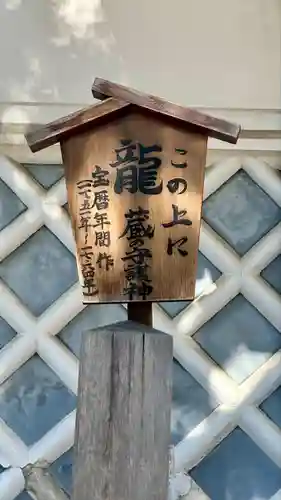 この上に
龍
蔵の守護神
宝暦年間作
(一七五一年〜一七六四年)